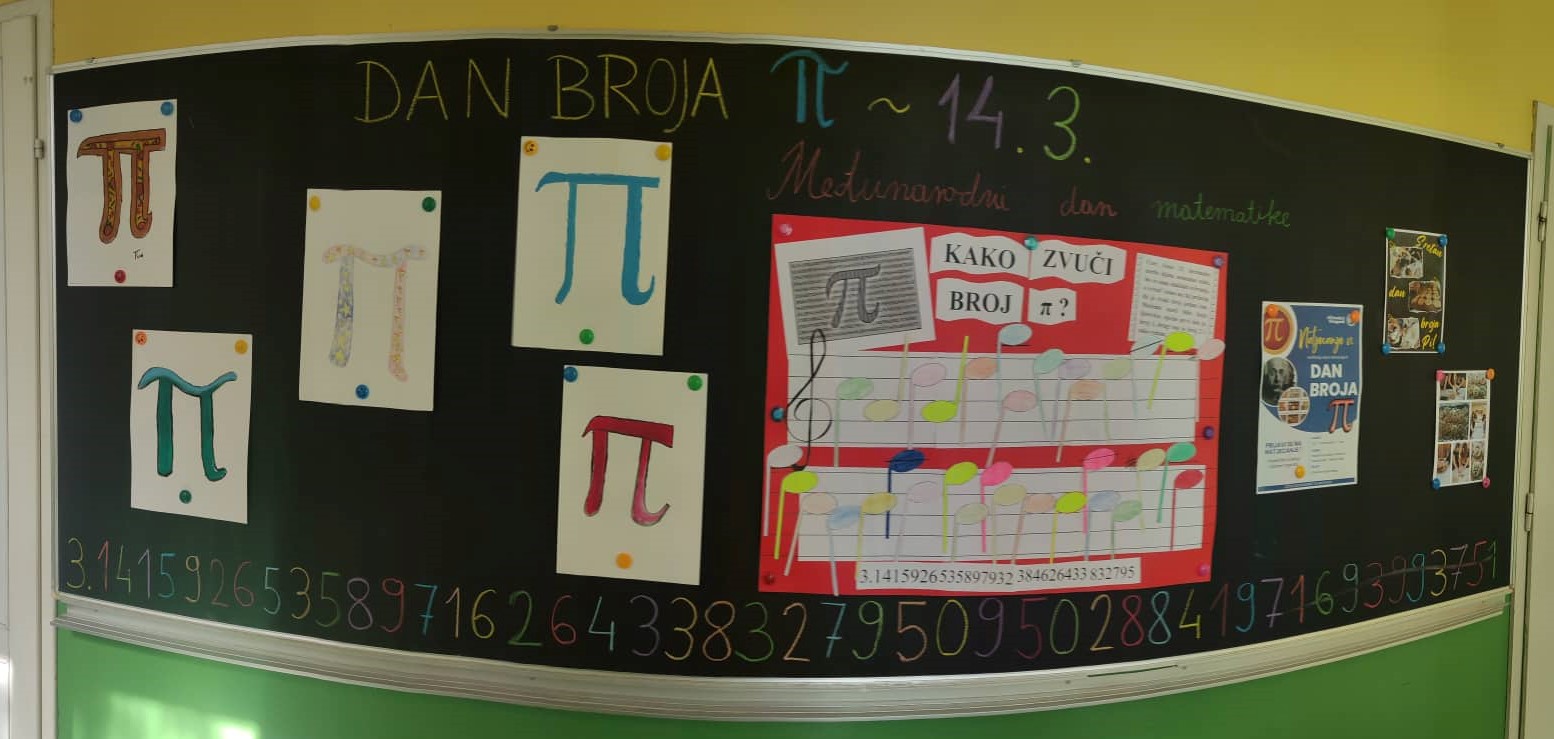 DAN BROJA π ~ 14.3.
Međunarodni dan matematike
KAKO ZVUČI
BROJ π ?
3.1415926535897932 384626433 832795
DAN
BROJA
π
PRIJAVI SE NA
NATJECANJE!
Sretan
dan
broja
Pi!
3.14159265358971626433832795095028841971693993751